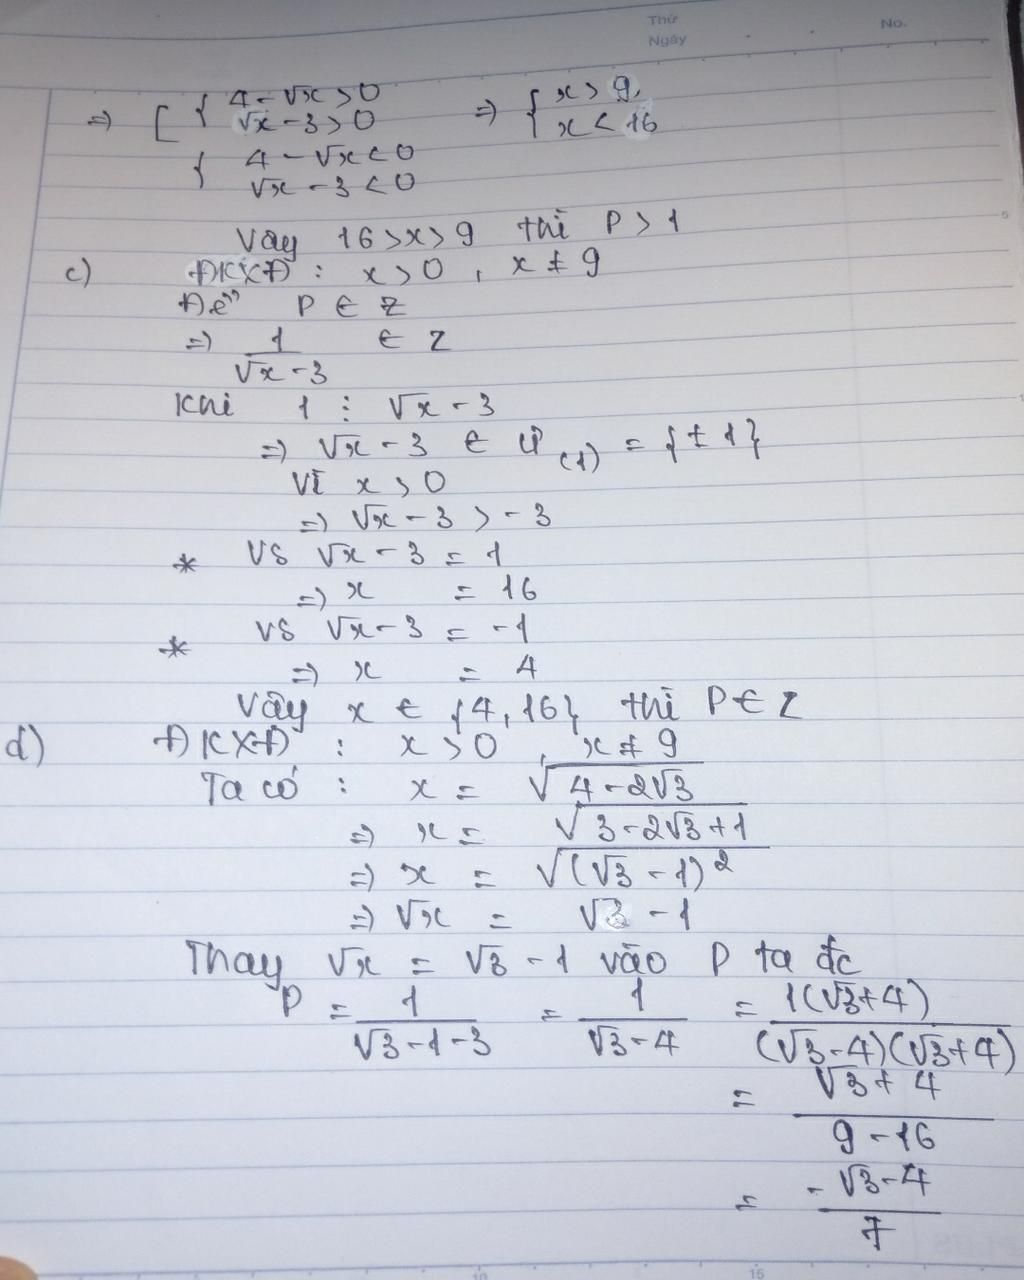 Thứ
Ngày
No.
=> [ { 4 - √x > 0 => { x > 9
√x - 3 > 0 x < 16
{ 4 - √x < 0
√x - 3 < 0
Vậy 16 > x > 9 thì P > 1
c) ĐKXĐ : x > 0 , x ≠ 9
Để P ∈ Z
=> 1/(√x - 3) ∈ Z
Khi 1 ⋮ √x - 3
=> √x - 3 ∈ Ư(1) = {± 1}
Vì x > 0
=> √x - 3 > -3
* VS √x - 3 = 1
=> x = 16
* VS √x - 3 = -1
=> x = 4
Vậy x ∈ {4, 16} thì P ∈ Z
d) ĐKXĐ : x > 0 , x ≠ 9
Ta có : x = √(4 - 2√3)
=> x = √(3 - 2√3 + 1)
=> x = √((√3 - 1)²)
=> √x = √3 - 1
Thay √x = √3 - 1 vào P ta đc
P = 1/(√3 - 1 - 3) = 1/(√3 - 4) = 1(√3 + 4)/((√3 - 4)(√3 + 4))
= (√3 + 4)/(9 - 16)
= (-√3 - 4)/7
10
15